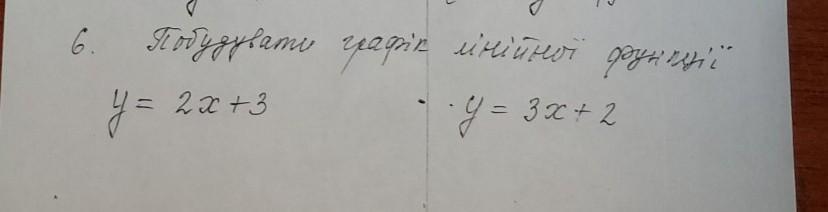 6. Побудувати графік лінійної функції
y = 2x + 3 y = 3x + 2